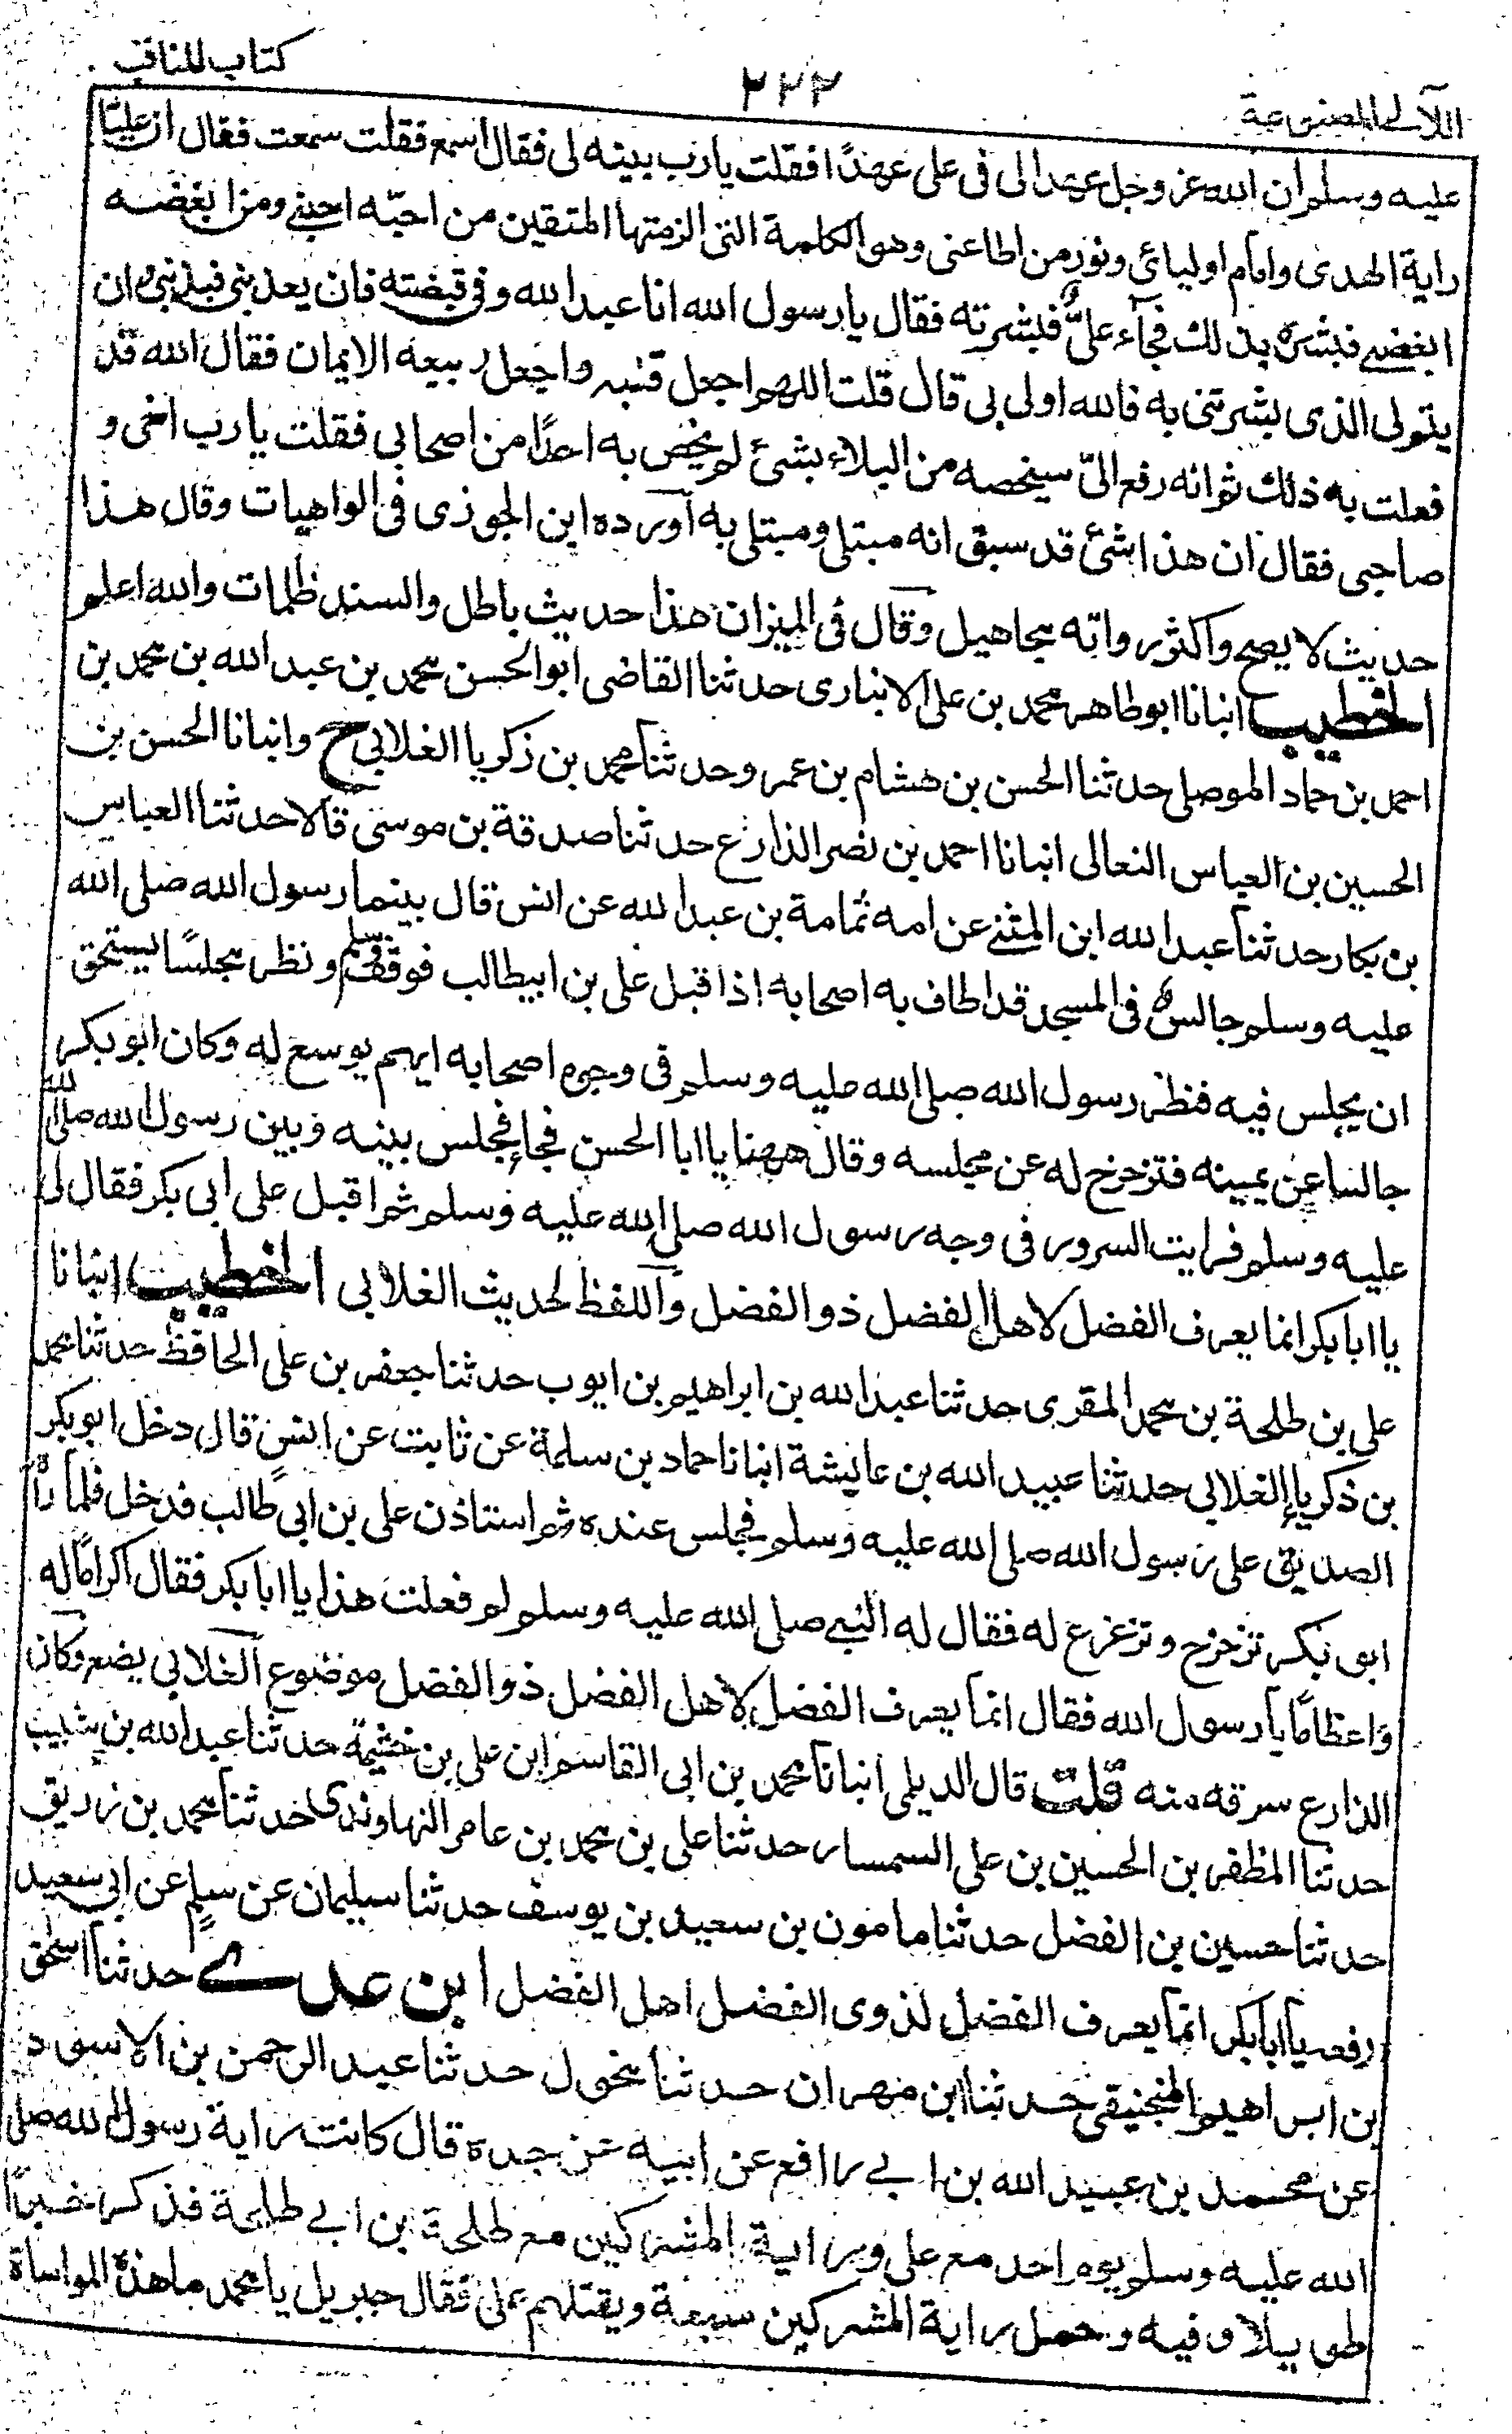 كتاب المناقب
٢٢٢
اللآلى المصنوعة
عليه وسلم ان الله عز وجل عهد الى فى على عهدًا فقلت يارب بينه لى فقال اسمع فقلت سمعت فقال ان عليًّا
راية الهدى وامام اوليائى ونور من اطاعنى وهو الكلمة التى الزمتها المتقين من احبّه احبنى ومن ابغضه
ابغضنى فبشره بذلك فجآء علىٌّ فبشرته فقال يا رسول الله انا عبد الله وفى قبضته فان يعذبنى فبذنبى وان
يتولى الذى بشرتنى به فالله اولى بى قال قلت اللهم اجعل قلبه واجعل ربيعه الايمان فقال الله قد
فعلت به ذلك ثم انه رفع الىّ سيخصه من البلاء بشئ لم يخص به احدًا من اصحابى فقلت يا رب اخى و
صاحبى فقال ان هذا شئ قد سبق انه مبتلى ومبتلى به اورده ابن الجوزى فى الواهيات وقال هذا
حديث لا يصح واكثر رواته مجاهيل وقال فى الميزان هذا حديث باطل والسند ظلمات والله اعلم
الخطيب انبانا ابو طاهر محمد بن على الانبارى حدثنا القاضى ابو الحسن محمد بن عبد الله بن محمد بن
احمد بن حماد الموصلى حدثنا الحسن بن هشام بن عمر وحدثنا محمد بن زكريا الغلابى ح وانبانا الحسن بن
الحسين بن العباس النعالى انبانا احمد بن نصر الذارع حدثنا صدقة بن موسى قالا حدثنا العباس
بن بكار حدثنا عبد الله ابن المثنى عن امه ثمامة بن عبد الله عن انس قال بينما رسول الله صلى الله
عليه وسلم جالس فى المسجد قد اطاف به اصحابه اذا قبل على بن ابيطالب فوقف فسلم ونظر مجلسًا يستحق
ان يجلس فيه فنظر رسول الله صلى الله عليه وسلم فى وجوه اصحابه ايهم يوسع له وكان ابو بكر
جالسا عن يمينه فتزحزح له عن مجلسه وقال ههنا يا ابا الحسن فجاء فجلس بينه وبين رسول الله صلى الله
عليه وسلم فرايت السرور فى وجه رسول الله صلى الله عليه وسلم ثم اقبل على ابى بكر فقال لى
يا ابا بكر انما يعرف الفضل لاهل الفضل ذو الفضل واللفظ لحديث الغلابى الخطيب انبانا
على بن طلحة بن محمد المقرى حدثنا عبد الله بن ابراهيم بن ايوب حدثنا جعفر بن على الحافظ حدثنا محمد
بن زكريا الغلابى حدثنا عبيد الله بن عائيشة انبانا حماد بن سلمة عن ثابت عن انس قال دخل ابو بكر
الصديق على رسول الله صلى الله عليه وسلم فجلس عنده ثم استاذن على بن ابى طالب فدخل فلما رآه
ابو بكر تزحزح وتزعزع له فقال له النبى صلى الله عليه وسلم لم فعلت هذا يا ابا بكر فقال اكرامًا له
واعظامًا يا رسول الله فقال انما يعرف الفضل لاهل الفضل ذو الفضل موضوع الغلابى يضع وكان
الذارع سرقه منه قلت قال الديلمى انبانا محمد بن ابى القاسم ابن على بن خثيمة حدثنا عبد الله بن شبيب
حدثنا المظفر بن الحسين بن على السمسار حدثنا على بن محمد بن عامر النهاوندى حدثنا محمد بن زريق
حدثنا حسين بن الفضل حدثنا مامون بن سعيد بن يوسف حدثنا سليمان عن سلم عن ابى سعيد
رفعه يا ابا بكر انما يعرف الفضل لذوى الفضل اهل الفضل ابن عدى حدثنا اسحق
بن ابراهيم المنجنيقى حدثنا ابن مهران حدثنا مخول حدثنا عبد الرحمن بن الاسود
عن محمد بن عبيد الله بن ابى رافع عن ابيه عن جده قال كانت راية رسول الله صلى
الله عليه وسلم يوم احد مع على وراية المشركين مع طلحة بن ابى طلحة فذكر خبرًا
طويلا وفيه وحمل راية المشركين سبعة ويقتلهم على فقال جبريل يا محمد ما هذه المواساة